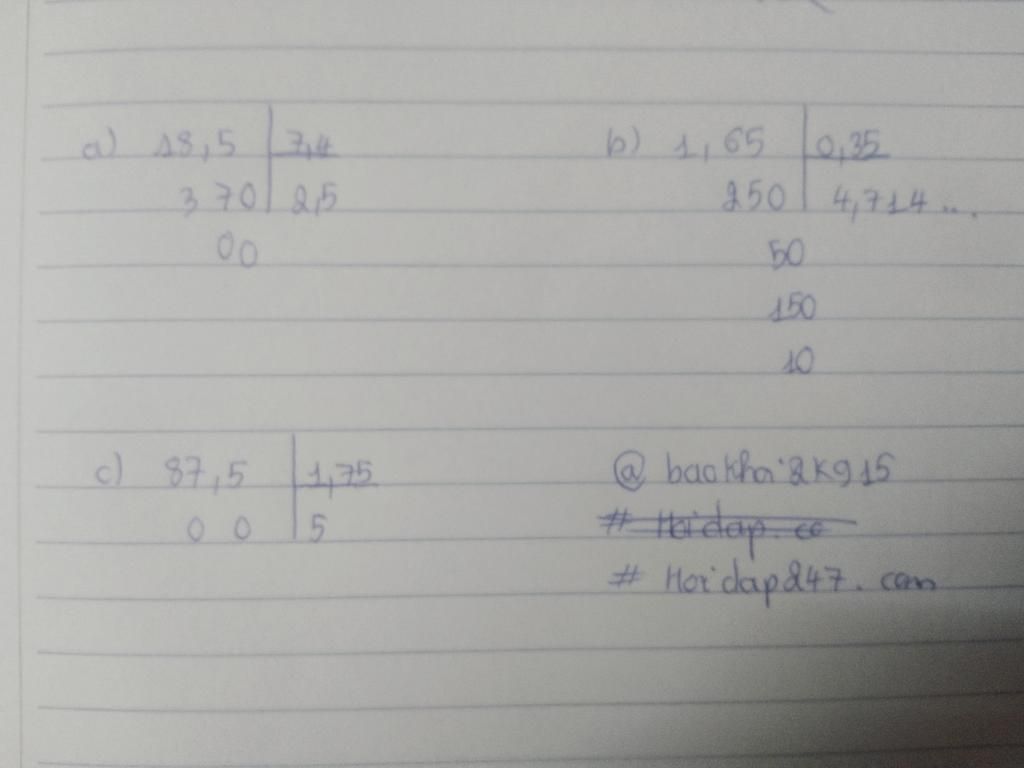 a) 18,5 7,4 b) 1,65 0,35
370 2,5 250 4,714...
00 50
150
10
c) 87,5 1,75 @ baokhoi2k915
0 0 5 # Hoidap.co
# Hoidap247.com